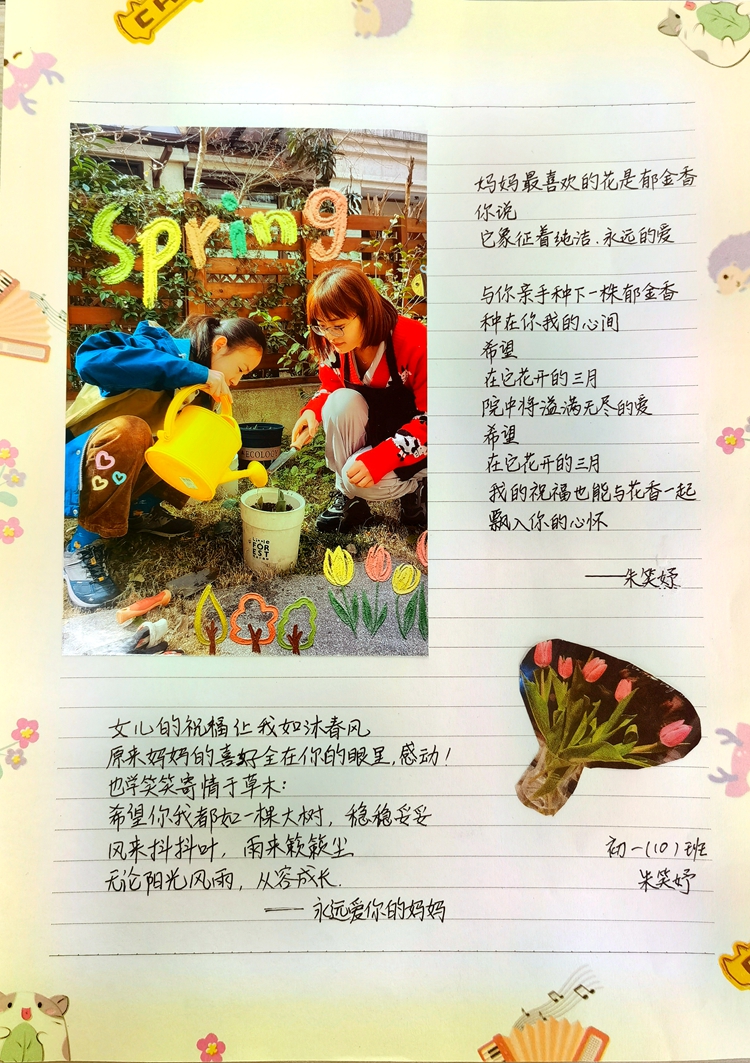 spring
ECOLOGY
FOR
EST
妈妈最喜欢的花是郁金香
你说
它象征着纯洁、永远的爱
与你亲手种下一株郁金香
种在你我的心间
希望
在它花开的三月
院中将溢满无尽的爱
希望
在它花开的三月
我的祝福也能与花香一起
飘入你的心怀
——朱笑妤
女儿的祝福让我如沐春风
原来妈妈的喜好全在你的眼里,感动!
也学笑笑寄情于草木:
希望你我都如一棵大树,稳稳妥妥
风来抖抖叶,雨来籁籁尘
无论阳光风雨,从容成长.
—— 永远爱你的妈妈
初一(10)班
朱笑妤